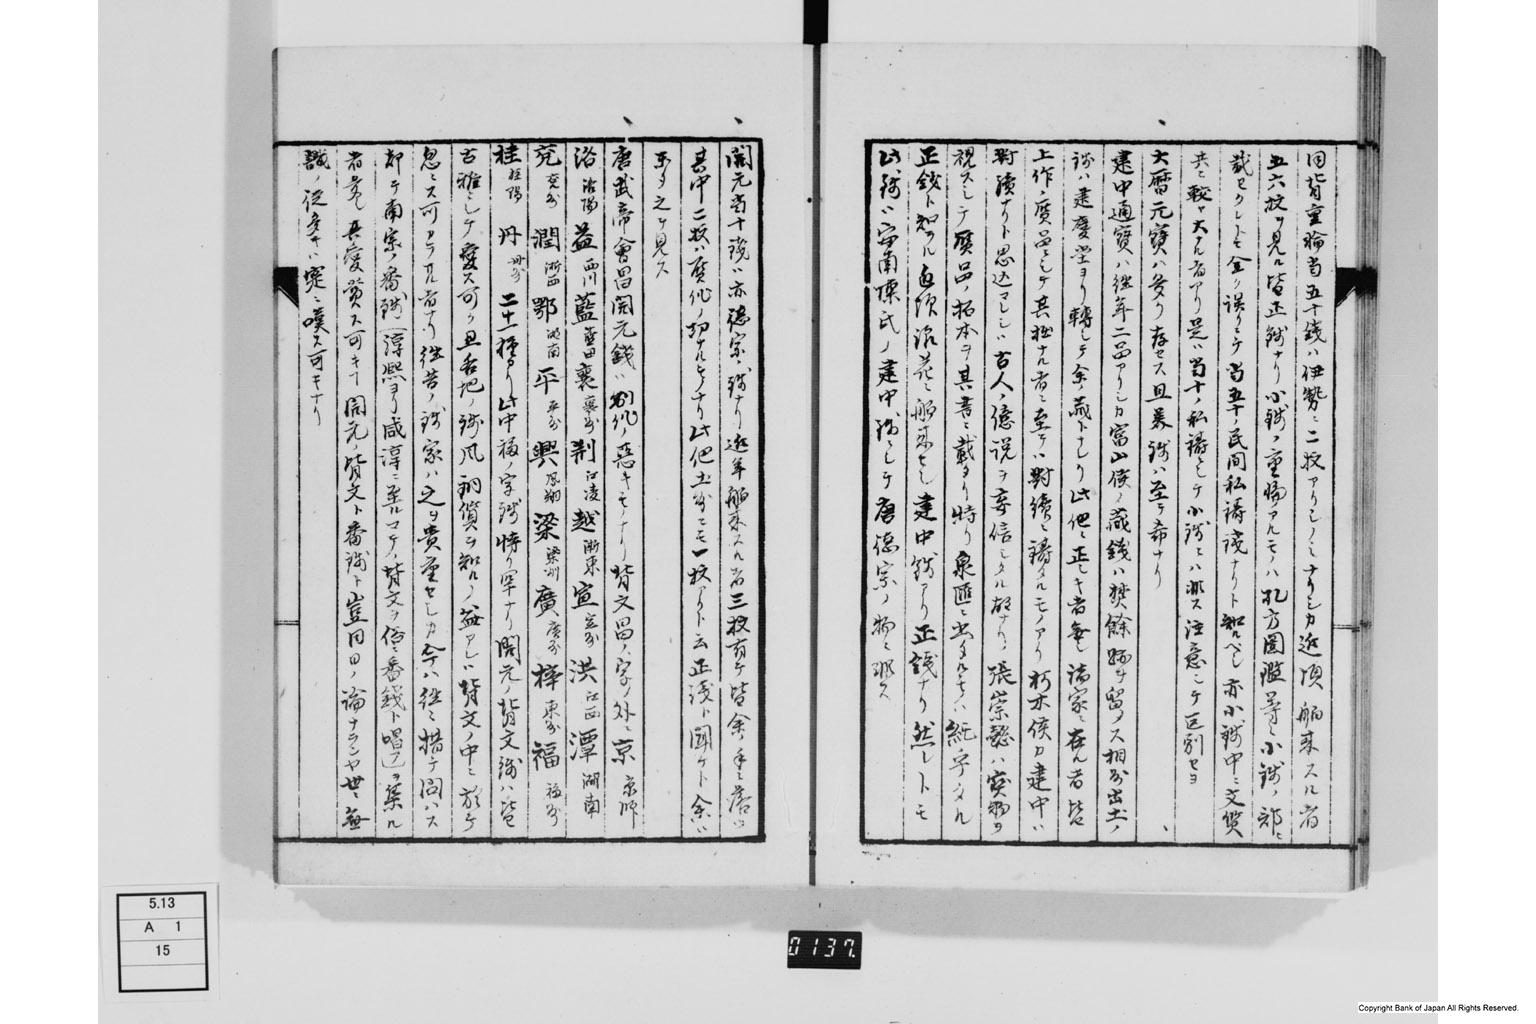 同背重輪当五十銭ハ伊勢ニ二枚アリシノミナリシカ近頃舶来スル者
五六枚ヲ見ル皆正銭ナリ小銭ノ重輪アルモノハ孔方囲濶等シ小銭ノ部ニ
載セタレトモ全ク誤リニテ当五十ノ民間私鋳銭ナリト知ルヘシ亦小銭中ニ文質
共ニ較ヤ大ナル者アリ是ハ当十ノ私鋳ニシテ小銭ニハ非ス注意シテ区別セヨ
大暦元宝ハ多ク存セス且美銭ハ至テ希ナリ
建中通寶ハ往年二品アリシカ富山侯ノ蔵銭ハ焚餘跡ヲ留メス相州出土ノ
銭ハ建慶堂ヨリ轉シテ余ノ蔵トナレリ此他ニ正シキ者無シ諸家ニ在ル者皆
上作ノ贋品ニシテ其拙ナル者ニ至テハ對續ニ鋳タルモノアリ朽木侯カ建中ハ
對讀ナリト思込マレシハ古人ノ億説ヲ妄信シタル故ナリ張崇懿ハ實物ヲ
視スシテ贋品ノ拓本ヲ其書ニ載タリ特リ泉匯ニ出タルモノハ紀字ナル
正銭ト知ラル近頃浪花ニ舶来セシ建中銭アリ正銭ナリ然レトモ
此銭ハ安南陳氏ノ建中銭ニシテ唐徳宗ノ物ニ非ス
開元当十銭ハ亦徳宗ノ銭ナリ近年舶来スル者三枚有テ皆余ノ手ニ落ツ
其中二枚ハ贋作ノ功ナルモノナリ此他土州ニモ一枚アリト云正銭ト聞ケト余ハ
未タ之ヲ見ス
唐武帝會昌開元銭ハ別作ノ悪キモノナリ背文昌ノ字ノ外ニ京京師
洛洛陽益西川藍藍田襄襄州荊江陵越浙東宣宣州洪江西潭湖南
兗兗州潤浙西鄂湖南平平州興鳳翔梁梁州廣廣州梓東川福福州
桂桂陽丹丹州二十一種アリ此中福ノ字銭特リ罕ナリ開元ノ背文銭ハ皆
古雅ニシテ愛ス可ク且各地ノ銭風銅質ヲ知ルノ益アレハ背文ノ中ニ於テ
忽ニス可カラサル者ナリ往昔ノ銭家ハ之ヲ貴重セシカ今ハ往々措テ問ハス
却テ南宋ノ番銭(淳熙ヨリ咸淳ニ至ルマテノ背文ヲ俗ニ番銭ト唱フ)ヲ集ル
者多シ其愛賞ス可キ開元ノ背文ト番銭ト豈同日ノ論ナランヤ世ニ無
識ノ徒多キハ寔ニ嘆ス可キナリ
5.13
A 1
15
0137.
Copyright Bank of Japan All Rights Reserved.